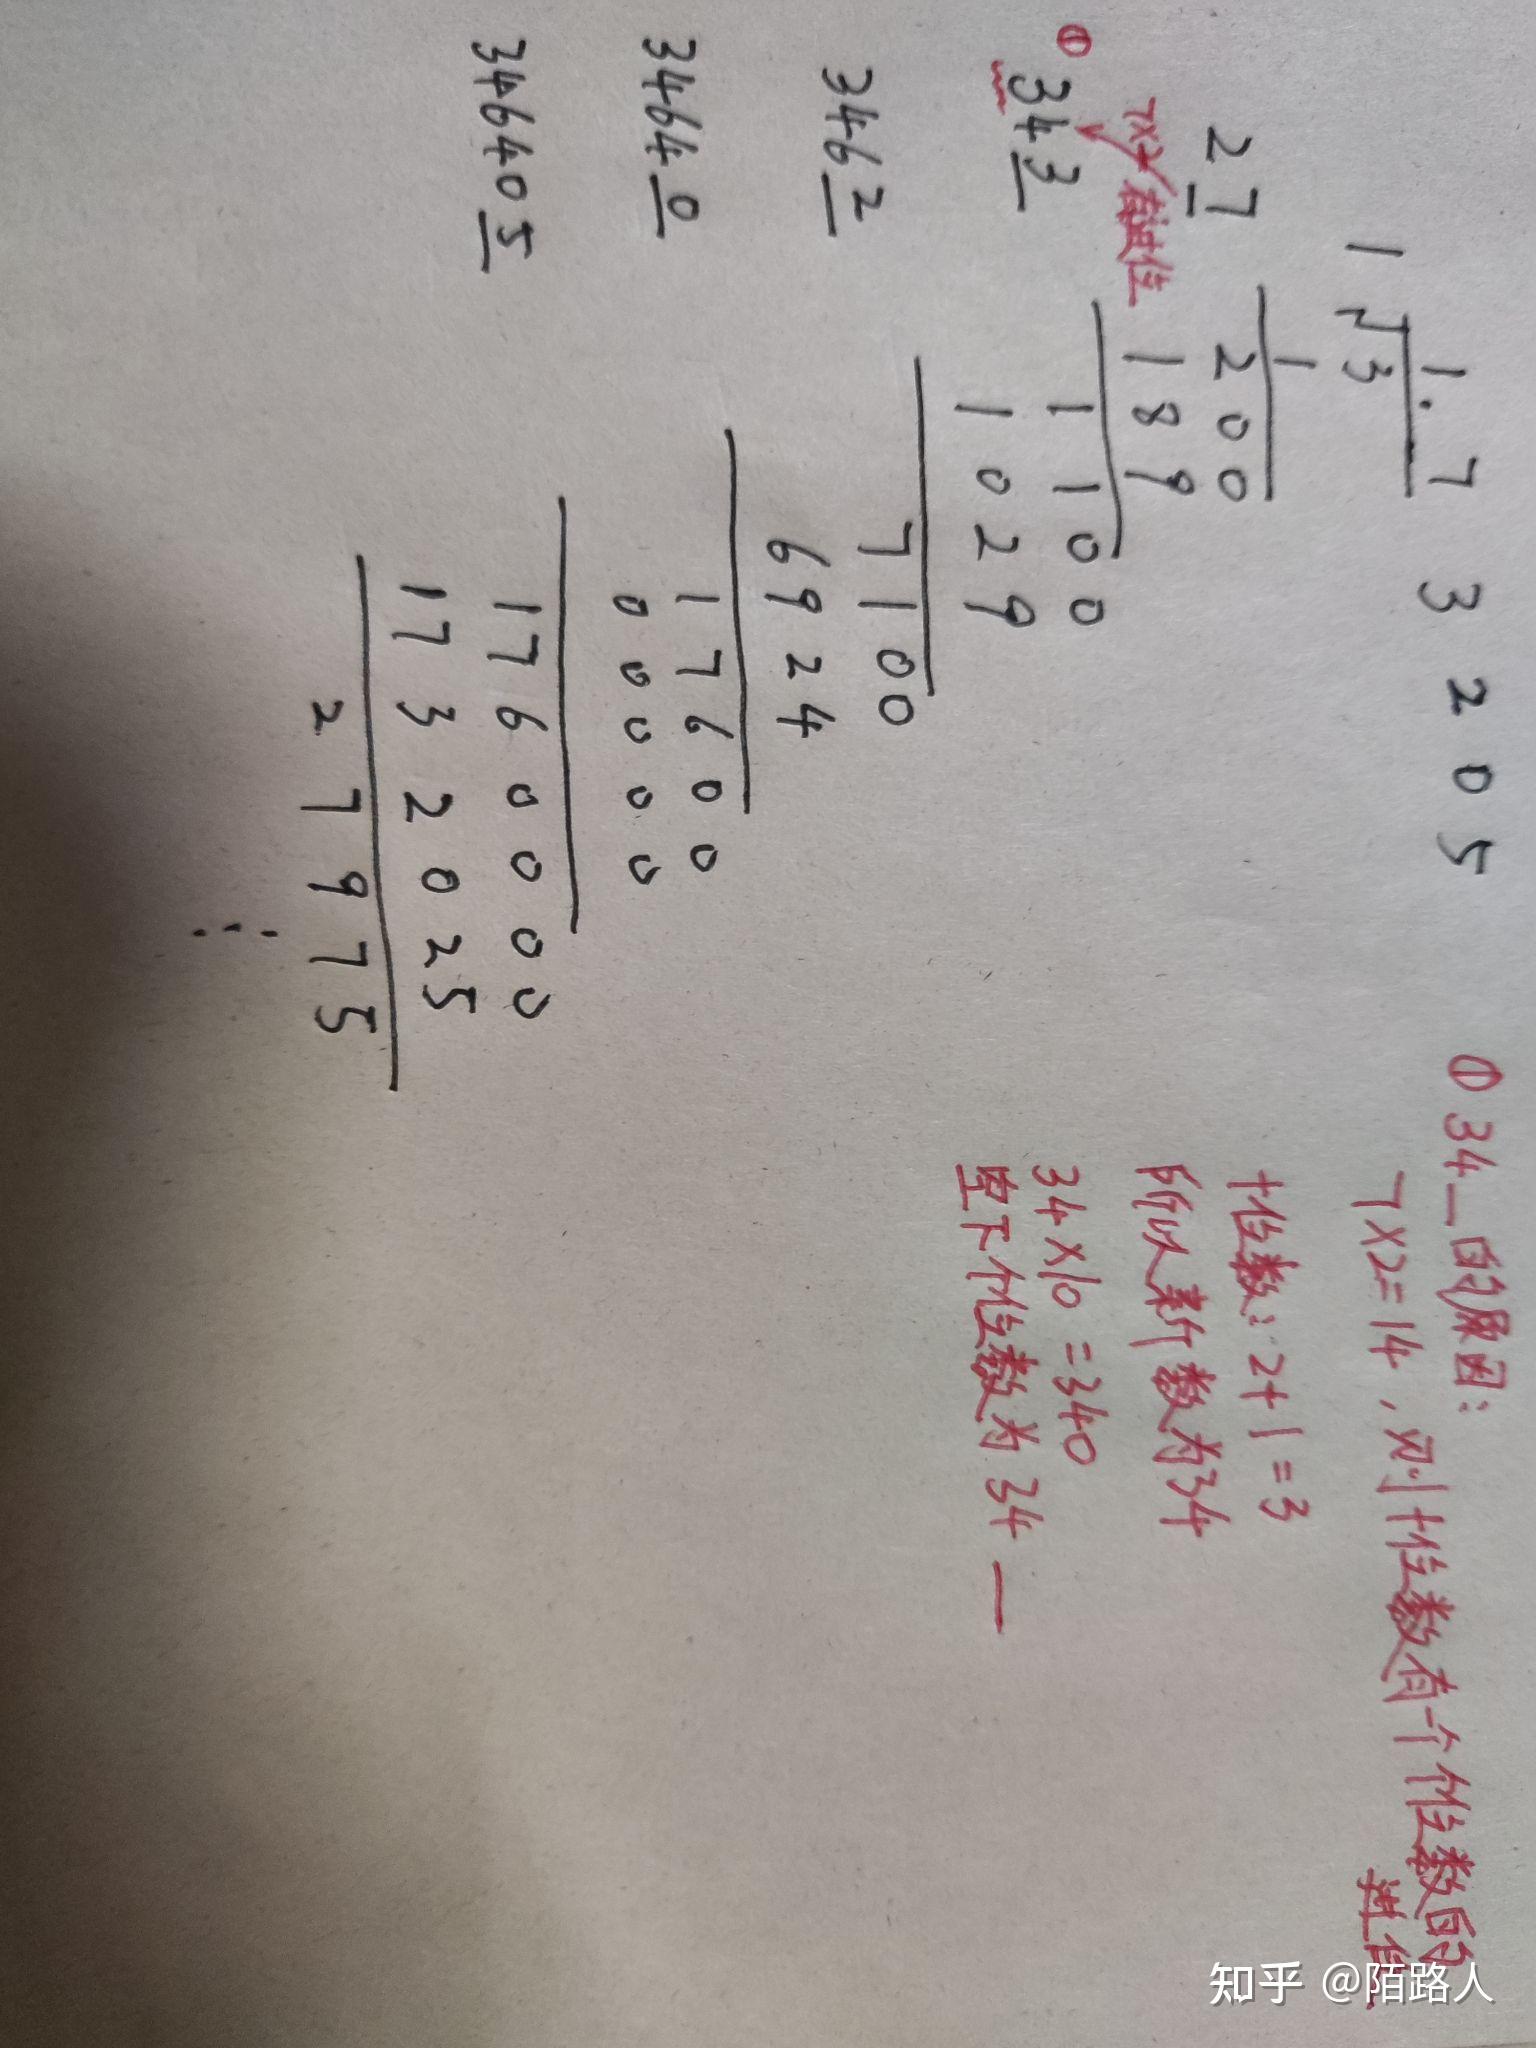 1.7 3 2 0 5
1 √3
1
27 200
189
7×2有进位
① 343 1100
1029
3462 7100
6924
34640 17600
00000
346405 1760000
1732025
27975
⋮
① 34_的原因:
7×2=14,则十位数有一个位数的
进位
十位数:2+1=3
所以新数为34
34×10=340
空下个位数为34_
知乎 @陌路人